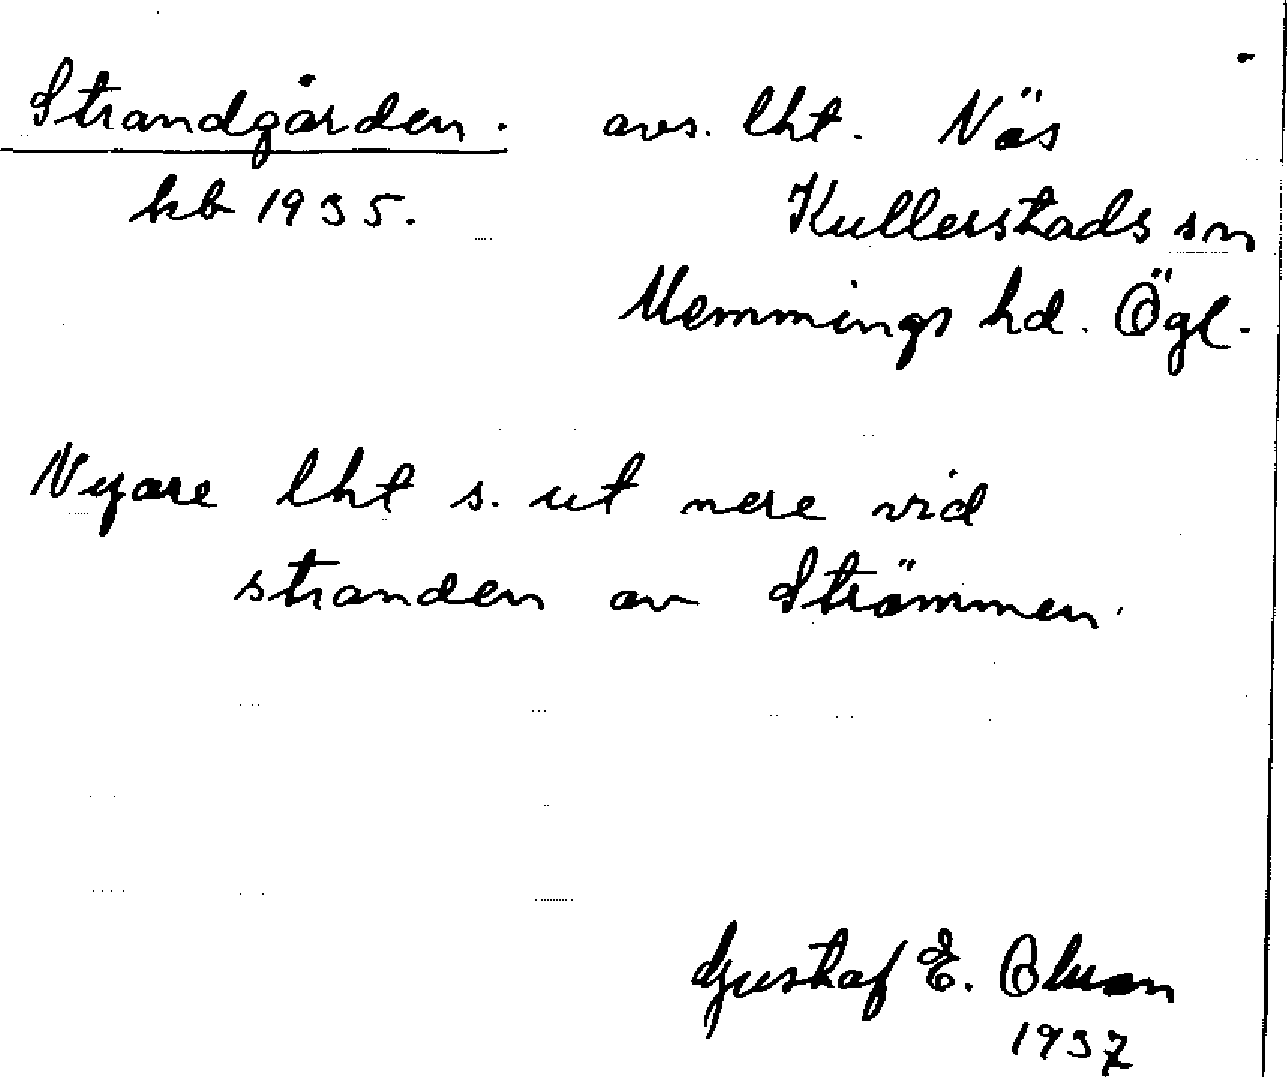 Strandgården. avs. lht. Näs
kb 1935. Kullerstads sn
Memmings hd. Ögl.
Nyare lht s. ut nere vid
stranden av Strömmen.
Gustaf E. Olsson
1937